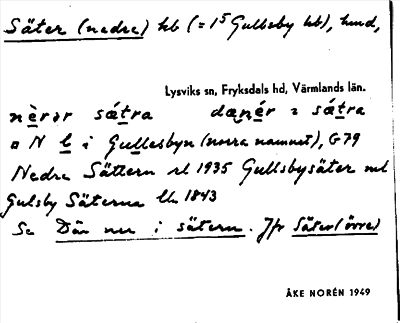 Säter (nedre) hb (= 1⁵ Gullsby hb), hmd,
Lysviks sn, Fryksdals hd, Värmlands län.
nèrər sǽtra dænér i sǽtra
¤ N l i Gullesbyn (norra namnet), G79
Nedre Sättern rl 1935 Gullsbysäter ml
Gulsby Säterna llr 1843
Se Där ner i sätern. Jfr Säter (övre)
ÅKE NORÉN 1949